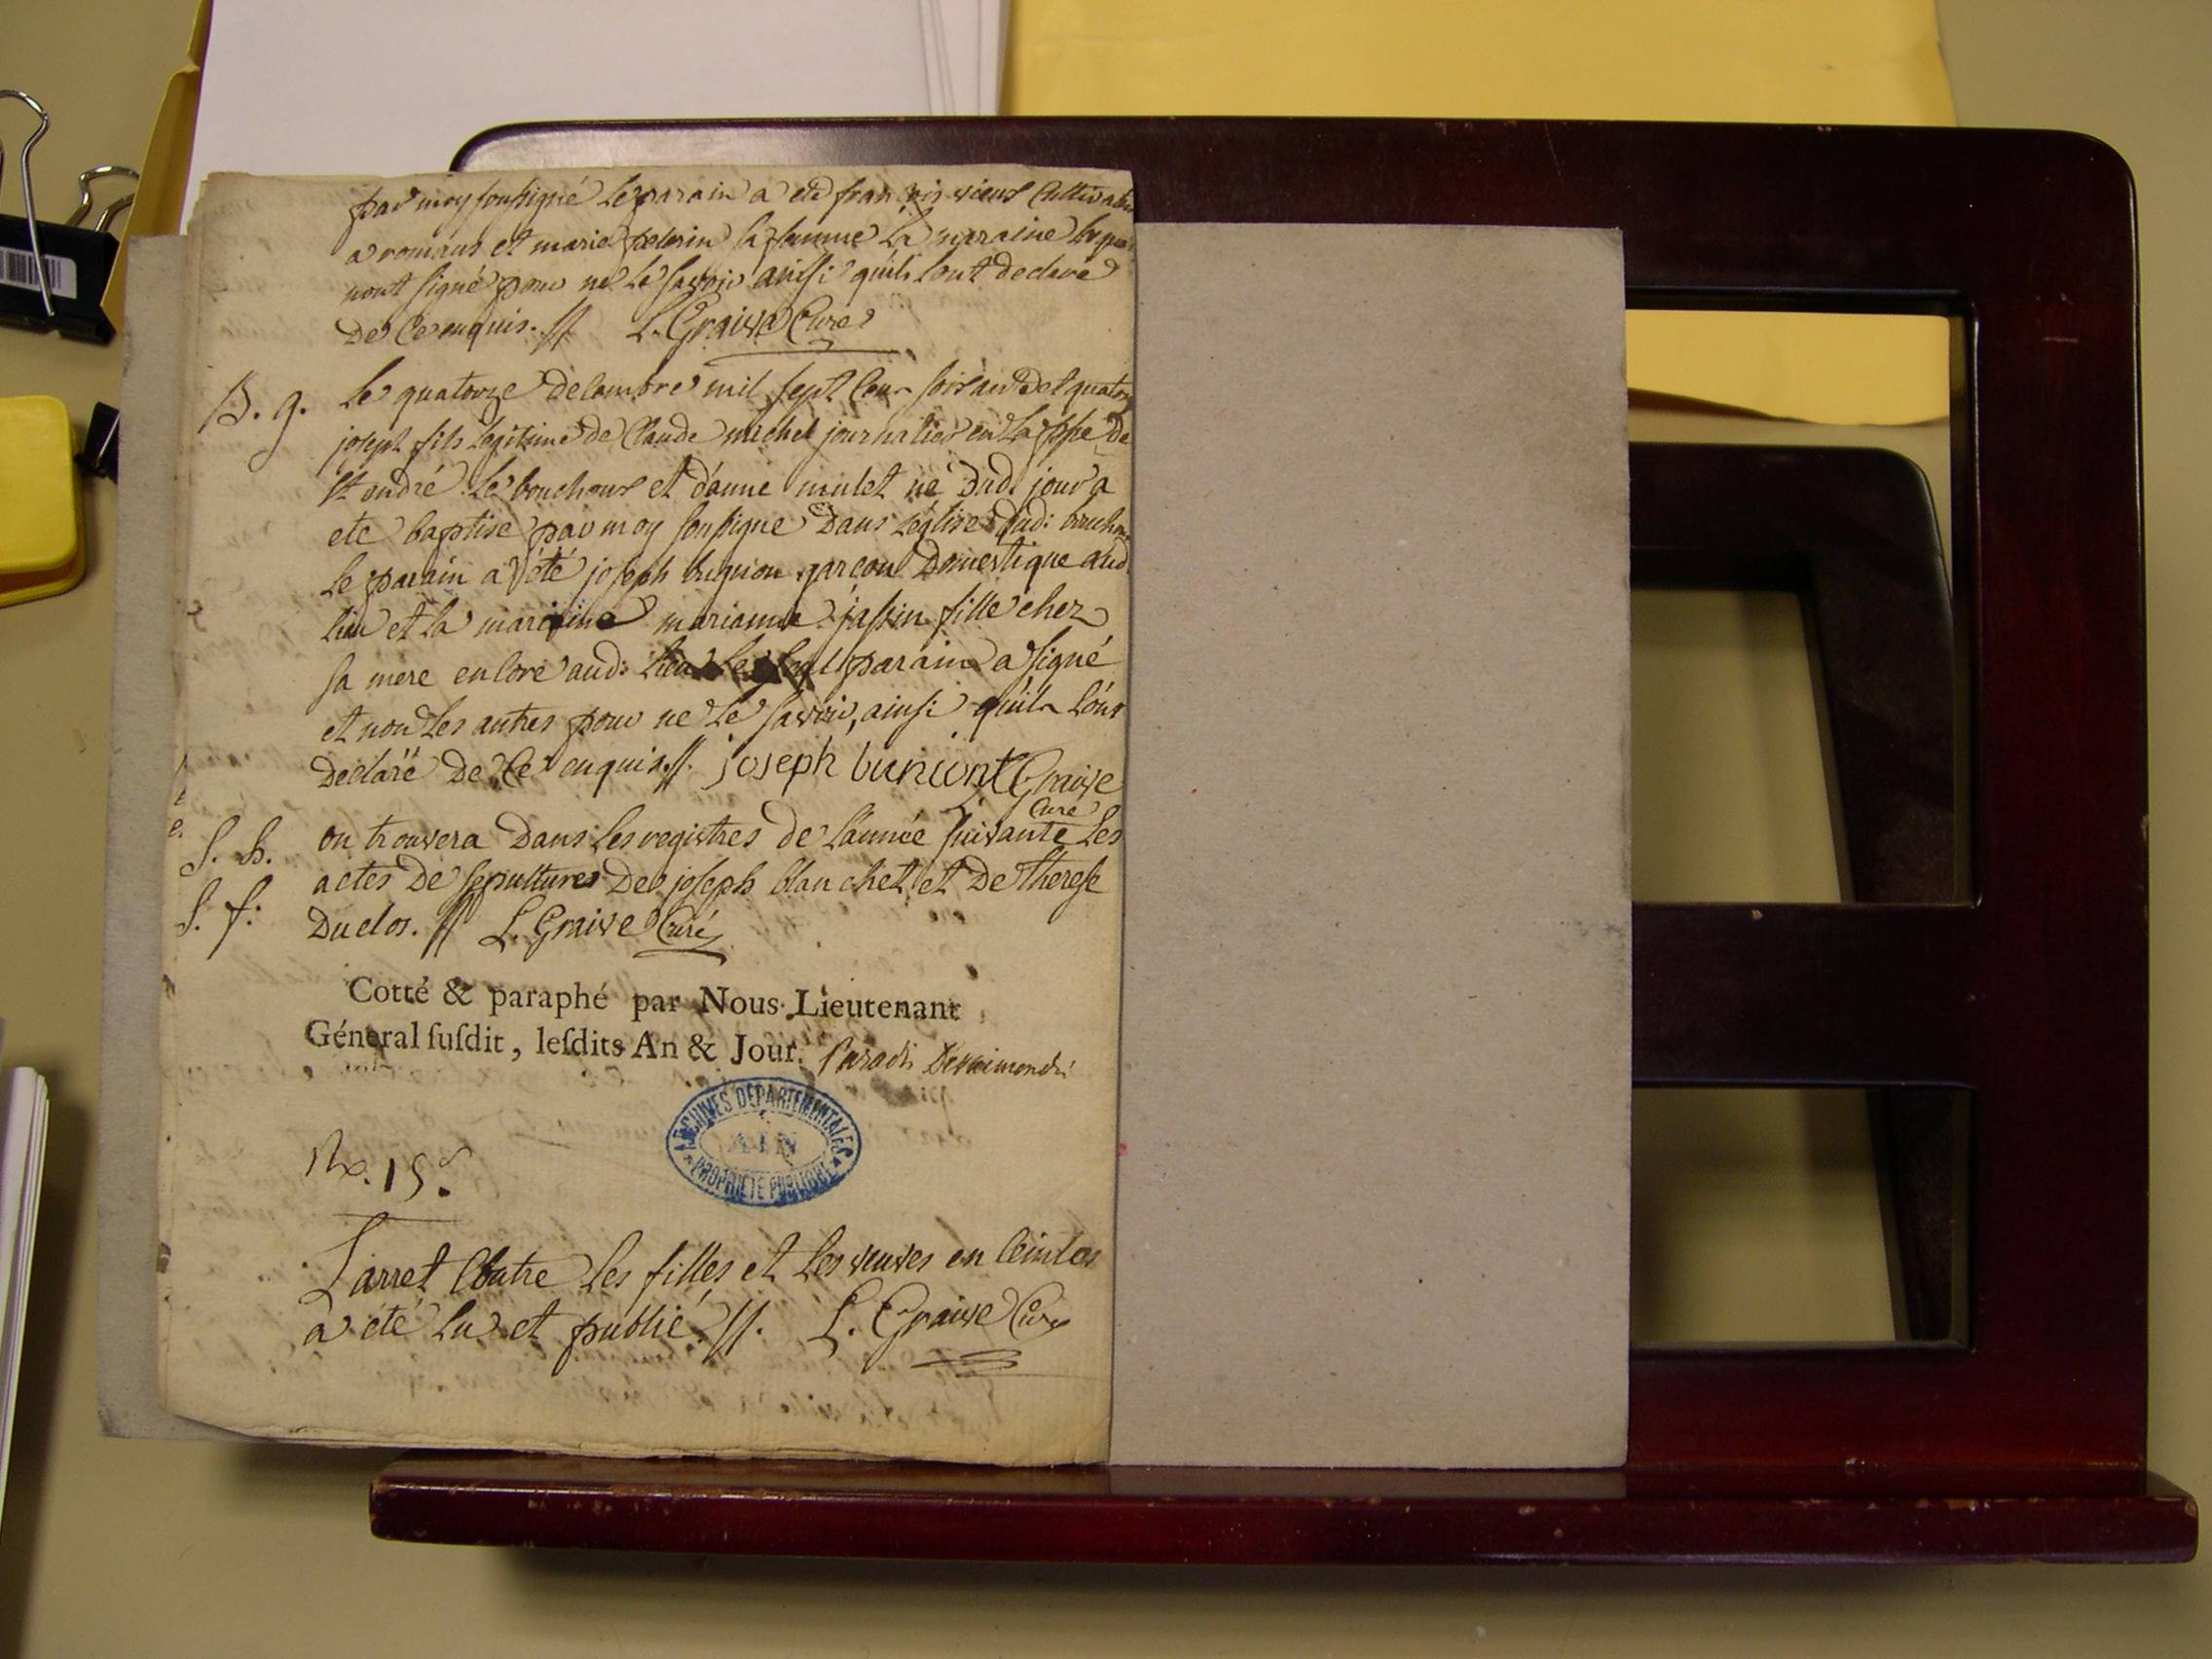 par moy soussigné le parain a eté francois vieux Cultivateur
a romans et marie pelerin sa femme la maraine
nont signé pour ne le savoir ainsi quils lont declaré
de ce enquis. // L. Graive Curé
B. g. le quatorze decembre mil sept cent soixante et quatorze
joseph fils legitime de Claude michel journalier en la ppe de
st andré le bouchoux et d'anne mulet né dud. jour a
ete baptise par moy soussigne dans léglise dud: bouchoux
le parain a été joseph bugnon garcon domestique aud
lieu et la maraine marianne jassin fille chez
sa mere encore aud: lieu le seul parain a signé
et non les autres pour ne le savoir, ainsi quils lont
declaré de ce enquis //. joseph buniont L. Graive
Curé
S. h. on trouvera dans les registres de l'année suivante les
actes de sepultures de joseph blanchet et de therese
S. f: Duclos. // L. Graive Curé
Cotté & paraphé par Nous Lieutenant
Géneral susdit, lesdits An & Jour. Paradis Deraimondis
Ro. 15s.
ARCHIVES DEPARTEMENTALES
AIN
PROPRIETE PUBLIQUE
L'arret Contre les filles et les veuves enceintes
a été lu et publié //. L. Graive Curé